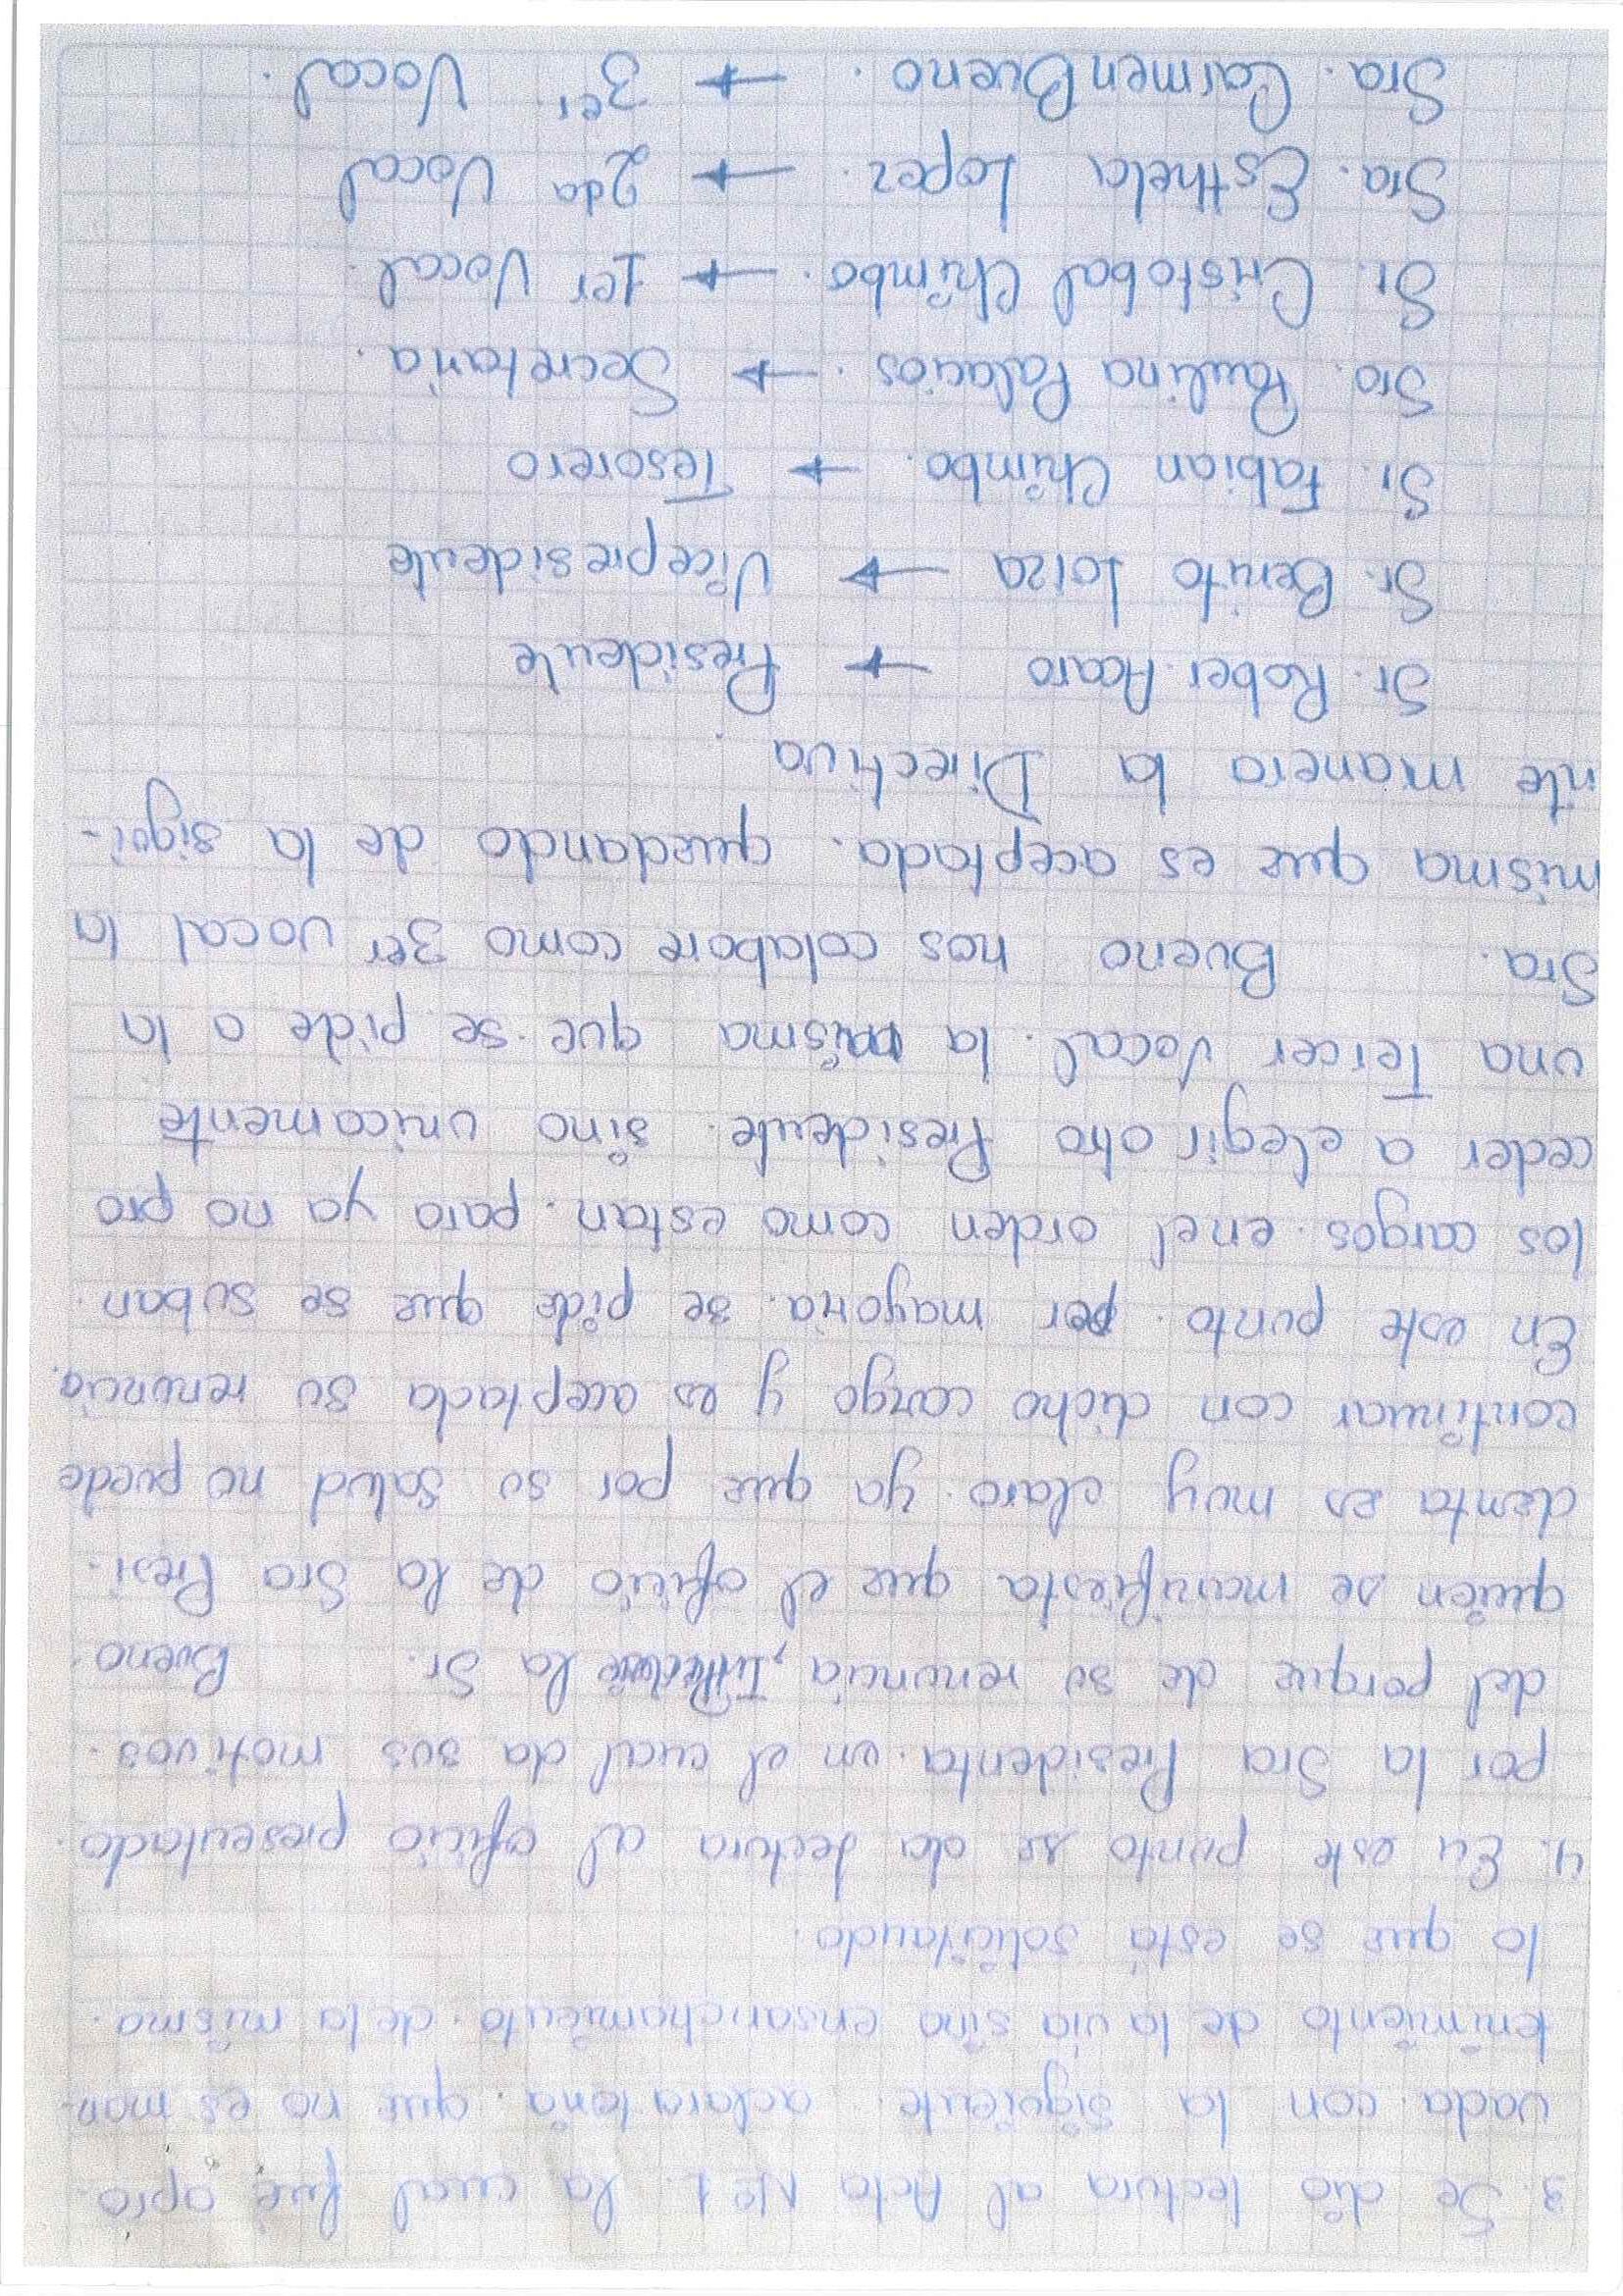 3. Se dio lectura al Acta Nº 1. la cual fué apro-
vada con la siguiente aclaratoria. que no es man-
tenimiento de la via sino ensanchamiento. de la misma.
lo que se está solicitando.
4. En este punto se da lectura al oficio presentado.
por la Sra Presidenta. en el cual da sus motivos.
del porque de su renuncia, la Sr. Bueno
quien se manifiesta que el oficio de la Sra Presi-
denta es muy claro. ya que por su salud no puede
continuar con dicho cargo y es aceptada su renuncia.
En este punto. por mayoria. se pide que se suban.
los cargos. en el orden como estan. para ya no pro
ceder a elegir otro Presidente. sino unicamente
una Tercer Vocal. la misma que. se pide a la
Sra. Bueno nos colabore como 3er vocal la
misma que es aceptada. quedando de la sigui-
nte manera la Directiva.
Sr. Rober Acaro → Presidente
Sr. Benito Loiza → Vicepresidente
Sr. Fabian Chimbo. → Tesorero
Sra. Paulina Palacios. → Secretaria.
Sr. Cristobal Chimbo. → 1er Vocal.
Sra. Esthela Lopez. → 2da Vocal
Sra. Carmen Bueno. → 3er Vocal.